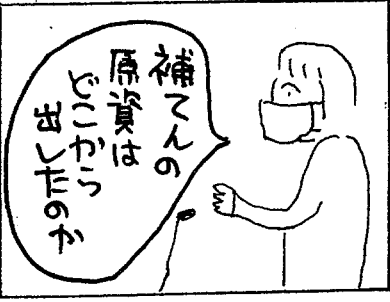 補てんの
原資は
どこから
出したのか